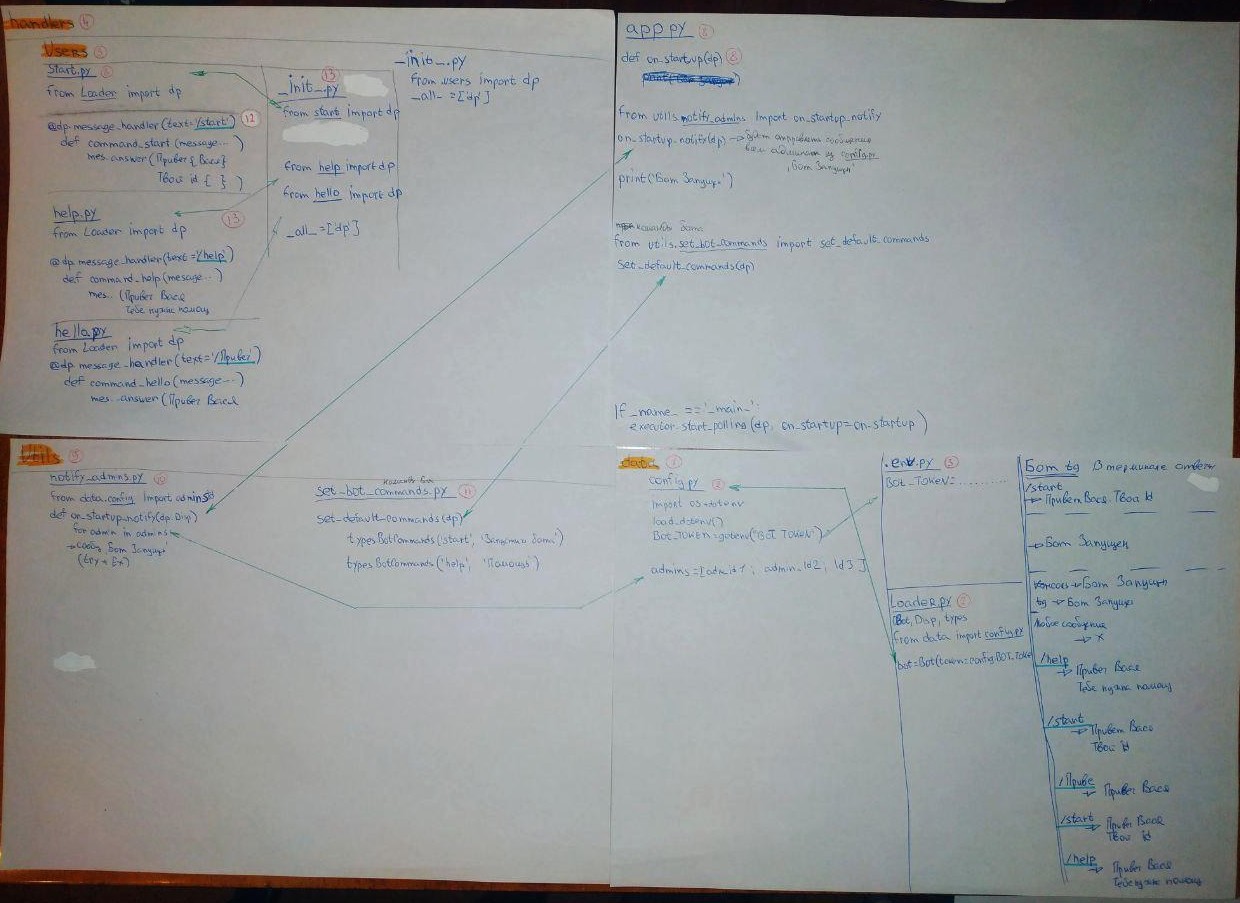 handlers 4
Users 5
Start.py 6
from Loader import dp
@dp message_handler(text='/start') 12
def command_start(message...
mes.answer(Привет {Вася}
Твой id { } )
help.py 13
from Loader import dp
@dp message_handler(text='/help')
def command_help(mesage...)
mes.. (Привет Вася
Тебе нужна помощ
hello.py
from Loader import dp
@dp message_handler(text='/Привет')
def command_hello(message...)
mes..answer(Привет Вася
13
_init_.py
from start import dp
from help import dp
from hello import dp
_all_=['dp']
_init_.py
from users import dp
_all_=['dp']
app.py
def on_startup(dp) 8
from utils notify_admins Import on_startup_notify
on_startup_notify(dp)
вам админам из config.py
, Бот Запущен
print('Бот Запущен')
команды бота
from utils.set_bot_commands import set_default_commands
Set_default_commands(dp)
If _name_ =='_main_':
executor.start_polling(dp, on_startup=on_startup)
Utils
notify_admns.py 10
from data.config Import admins
def on_startup_notify(dp:Disp)
for admin in admins
Бот Запущен
(try + Ex)
set_bot_commands.py 11
set-default-commands(dp)
typesBotCommands('start', 'Запустить бота')
typesBotCommands('help', 'Помощь')
data 1
config.py 2
import os+dotenv
load_dotenv()
Bot_TOKEN=getenv("BOT TOKEN")
admins=[adm_id1; admin_Id2; Id3]
.env.py 3
Bot_TOKEN=.........
Loader.py
Bot, Disp, types
from data import config.py
bot=Bot(token=config.BOT.Token
Бот tg В терминале ответы
/start
Привет Вася. Твой Id
Бот Запущен
Консоль Бот Запущен
tg Бот Запущен
Любое сообщение
x
/help
Привет Вася
Тебе нужна помощ
/start
Привет Вася
Твой id
/Приве
Привет Вася
/start
Привет Вася
Твой id
/help
Привет Вася
Тебе нужна помощ